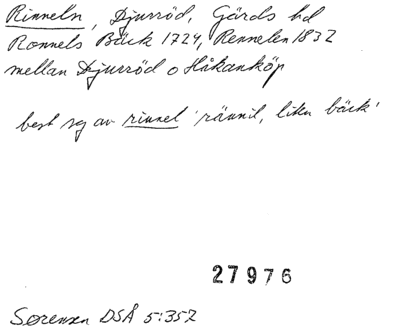 Rinneln, Djurröd, Gärds hd
Ronnels Bäck 1724, Rennelen 1832
mellan Djurröd o Håkanköp
best sg av rinnel 'rännil, liten bäck'
27976
Sørensen DSÅ 5:352